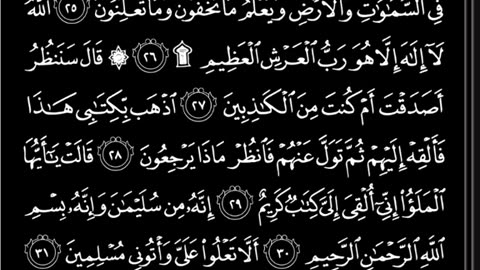 فِي ٱلسَّمَٰوَٰتِ وَٱلْأَرْضِ وَيَعْلَمُ مَا تُخْفُونَ وَمَا تُعْلِنُونَ ٢٥ ٱللَّهُ
لَآ إِلَٰهَ إِلَّا هُوَ رَبُّ ٱلْعَرْشِ ٱلْعَظِيمِ ۩ ٢٦ ۞ قَالَ سَنَنظُرُ
أَصَدَقْتَ أَمْ كُنتَ مِنَ ٱلْكَٰذِبِينَ ٢٧ ٱذْهَب بِّكِتَٰبِي هَٰذَا
فَأَلْقِهْ إِلَيْهِمْ ثُمَّ تَوَلَّ عَنْهُمْ فَٱنظُرْ مَاذَا يَرْجِعُونَ ٢٨ قَالَتْ يَٰٓأَيُّهَا
ٱلْمَلَؤُا۟ إِنِّيٓ أُلْقِيَ إِلَيَّ كِتَٰبٌ كَرِيمٌ ٢٩ إِنَّهُۥ مِن سُلَيْمَٰنَ وَإِنَّهُۥ بِسْمِ
ٱللَّهِ ٱلرَّحْمَٰنِ ٱلرَّحِيمِ ٣٠ أَلَّا تَعْلُوا۟ عَلَيَّ وَأْتُونِي مُسْلِمِينَ ٣١